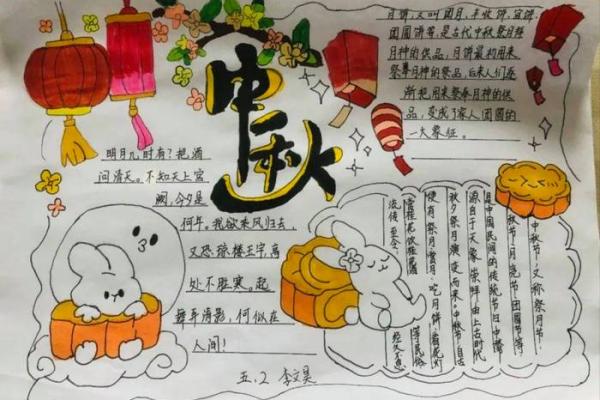 中秋
月饼,又叫团月,丰收饼,宫饼,
团圆饼等,是古代中秋祭月拜
月神的供品,月饼最初用来
祭奉月神的祭品,后来人们逐
渐把用来祭奉月神的供
品,变成了家人团圆的
一大象征。
明月几时有?把酒
问清天。不知天上宫
阙,今夕是
何年。我欲乘风归去,
又恐琼楼玉宇,高
处不胜寒。起
舞弄清影,何似在
人间!
中秋节,又称祭月节、
秋节、月亮节、团圆节等,
是中国民间的传统节日中秋
源自于天象崇拜由上古时代
秋夕祭月演变而来。中秋节自古
便有祭月、赏月、吃月饼、看花灯
赏桂花饮桂花酒等民俗
流传至今,经久不息
五.2 李文昊